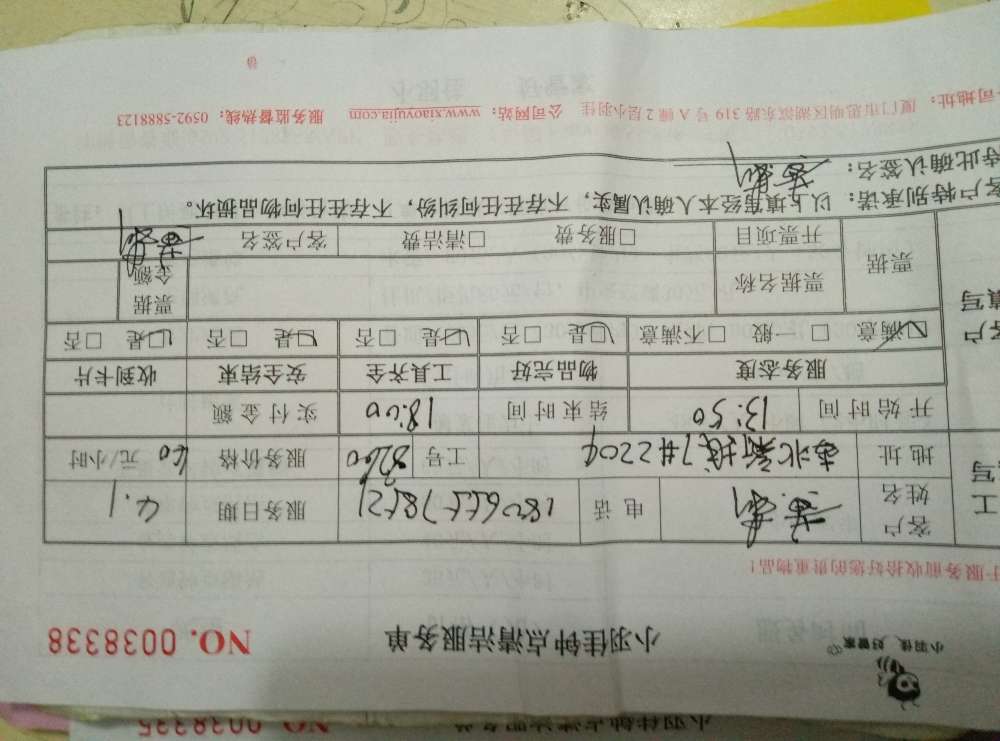 小羽佳 好管家
小羽佳钟点清洁服务单 NO. 0038338
于服务前收拾好您的贵重物品!
工 客户姓名 电话 服务日期 4.1
写 地址 7#2204 工号 服务价格 40 元/小时
开始时间 13:50 结束时间 18:00 实付金额
服务态度 物品完好 工具齐全 安全结束 收到卡片
客户 ☑满意 □一般 □不满意 ☑是 □否 ☑是 □否 ☑是 □否 ☑是 □否
填写 票据 票据名称 票据金额
开票项目 □服务费 □清洁费 客户签名
客户特别承诺:以上填写经本人确认属实,不存在任何纠纷,不存在任何物品损坏。
特此确认签名:
公司地址:厦门市思明区湖滨东路 319 号 A 幢 2 层小羽佳 公司网站:www.xiaoyujia.com 服务监督热线:0592-5888123
小羽佳钟点清洁服务单 NO. 0038335